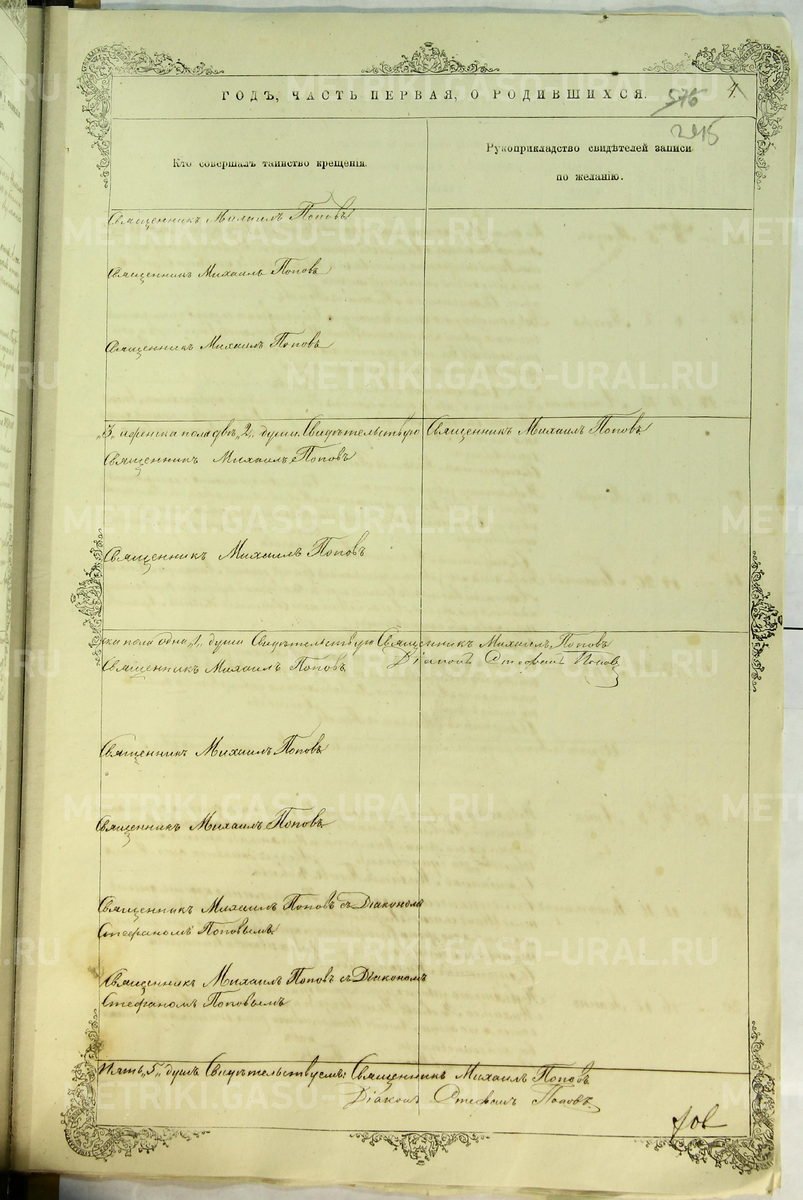 ГОДЪ, ЧАСТЬ ПЕРВАЯ, О РОДИВШИХСЯ.
576
215
Кто совершалъ таинство крещенія.
Рукоприкладство свидѣтелей записи
по желанію.
Священникъ Михаилъ Поповъ
Священникъ Михаилъ Поповъ
Священникъ Михаилъ Поповъ
„3„ женска пола двѣ „2„ души. Свидѣтельствую Священникъ Михаилъ Поповъ
Священникъ Михаилъ Поповъ
Священникъ Михаилъ Поповъ
ска пола одна „1„ душа Свидѣтельствую Священникъ Михаилъ Поповъ
Діаконъ Стефанъ Поповъ
Священникъ Михаилъ Поповъ
Священникъ Михаилъ Поповъ
Священникъ Михаилъ Поповъ
Священникъ Михаилъ Поповъ съ Діакономъ
Стефаномъ Поповымъ.
Священникъ Михаилъ Поповъ съ Діакономъ
Стефаномъ Поповымъ
Пять „5„ душъ. Свидѣтельствуемъ: Священникъ Михаилъ Поповъ
Діаконъ Стефанъ Поповъ.
METRIKI.GASO-URAL.RU